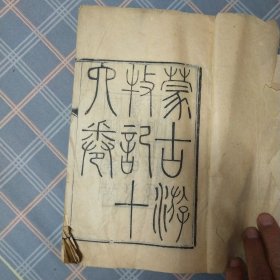 蒙古游
牧記十
六卷